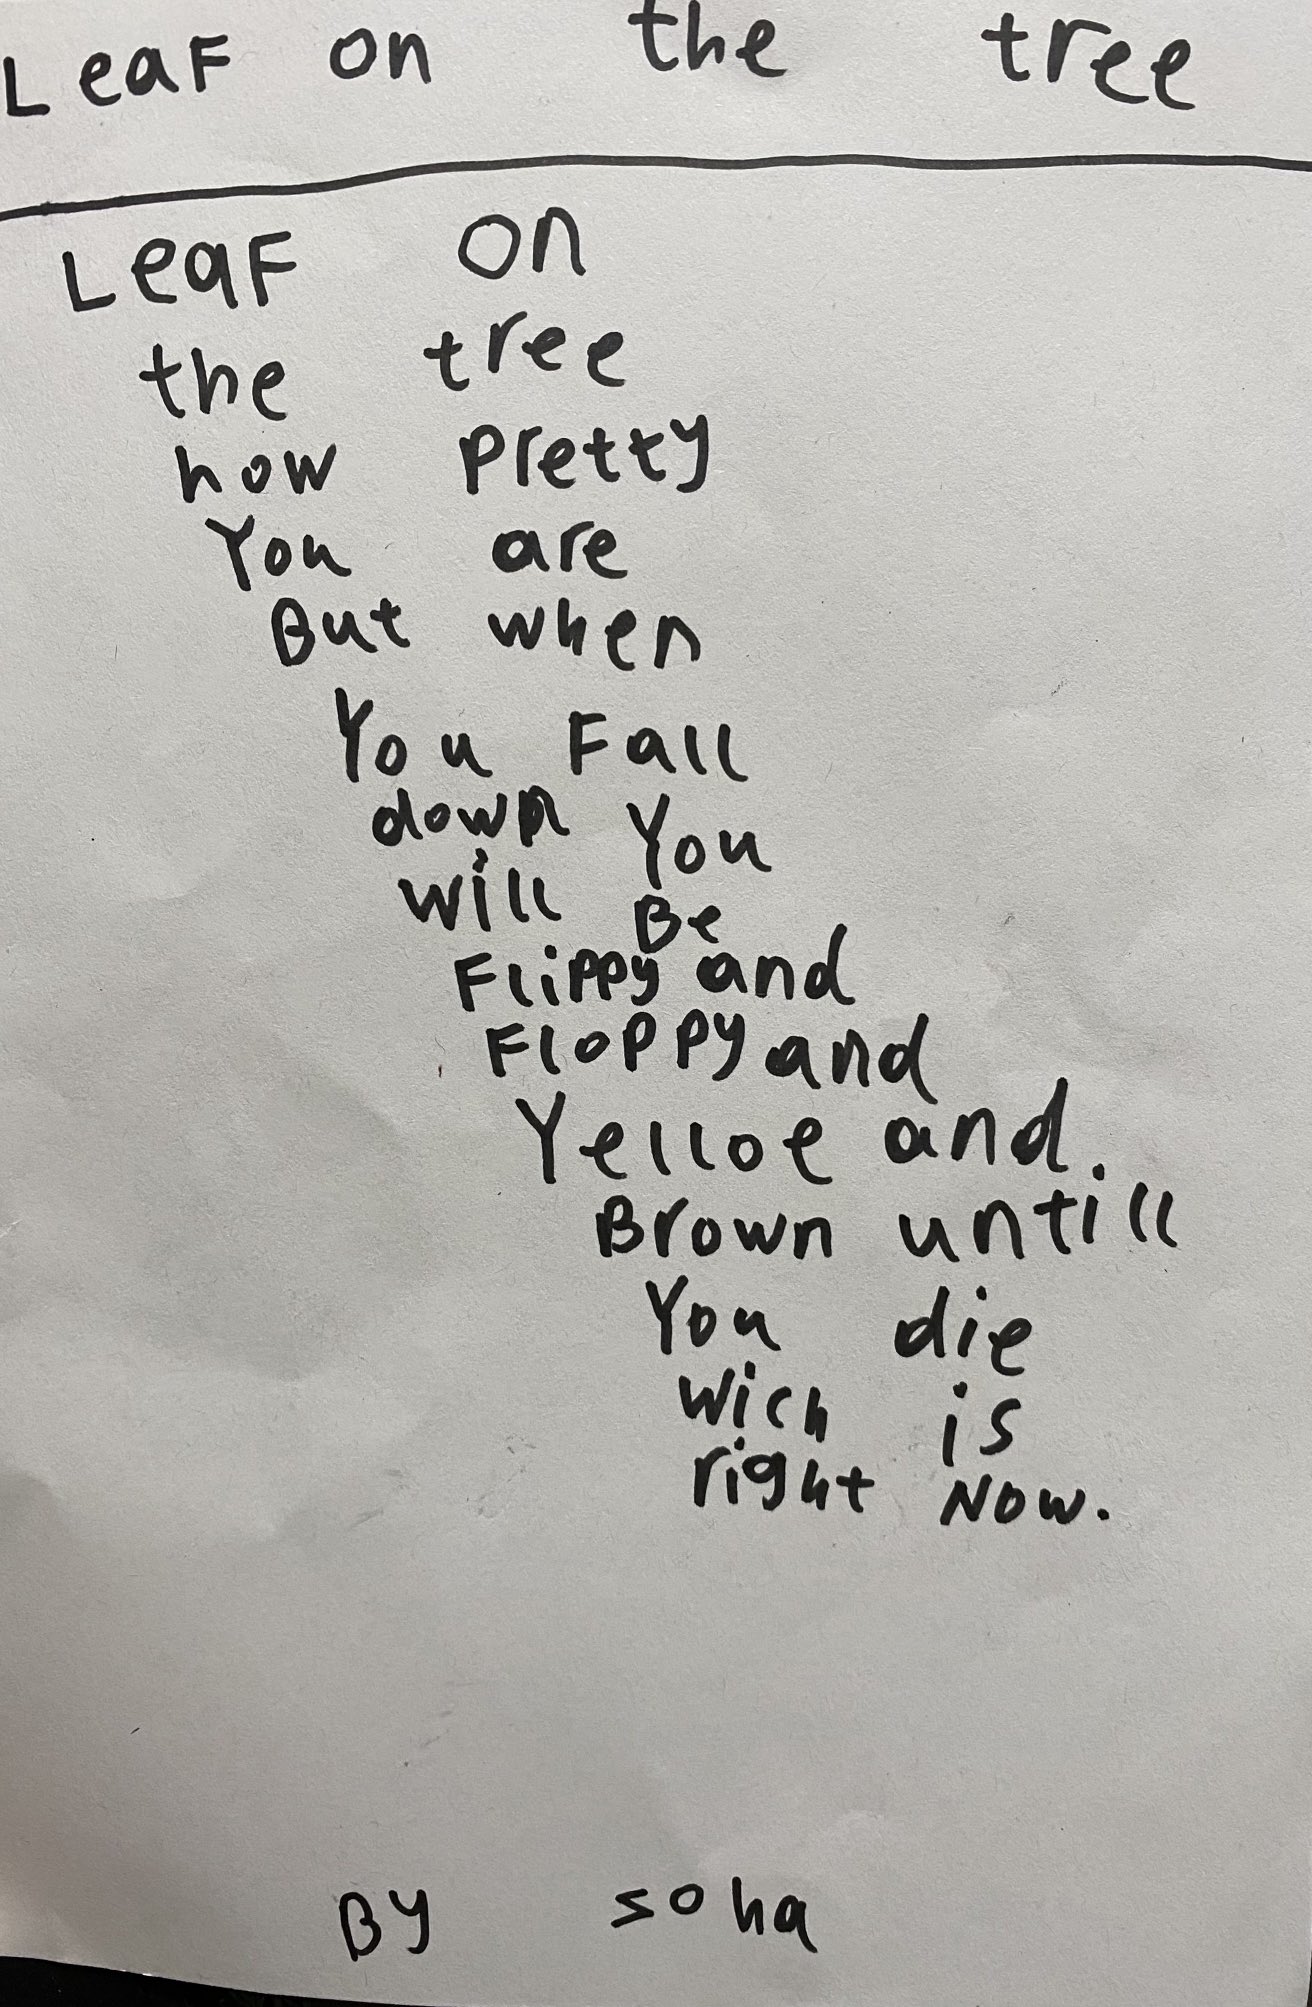 Leaf on the tree
Leaf on
the tree
how pretty
You are
But when
You Fall
down You
will Be
Flippy and
Floppy and
Yelloe and.
Brown untill
You die
wich is
right Now.
By soha